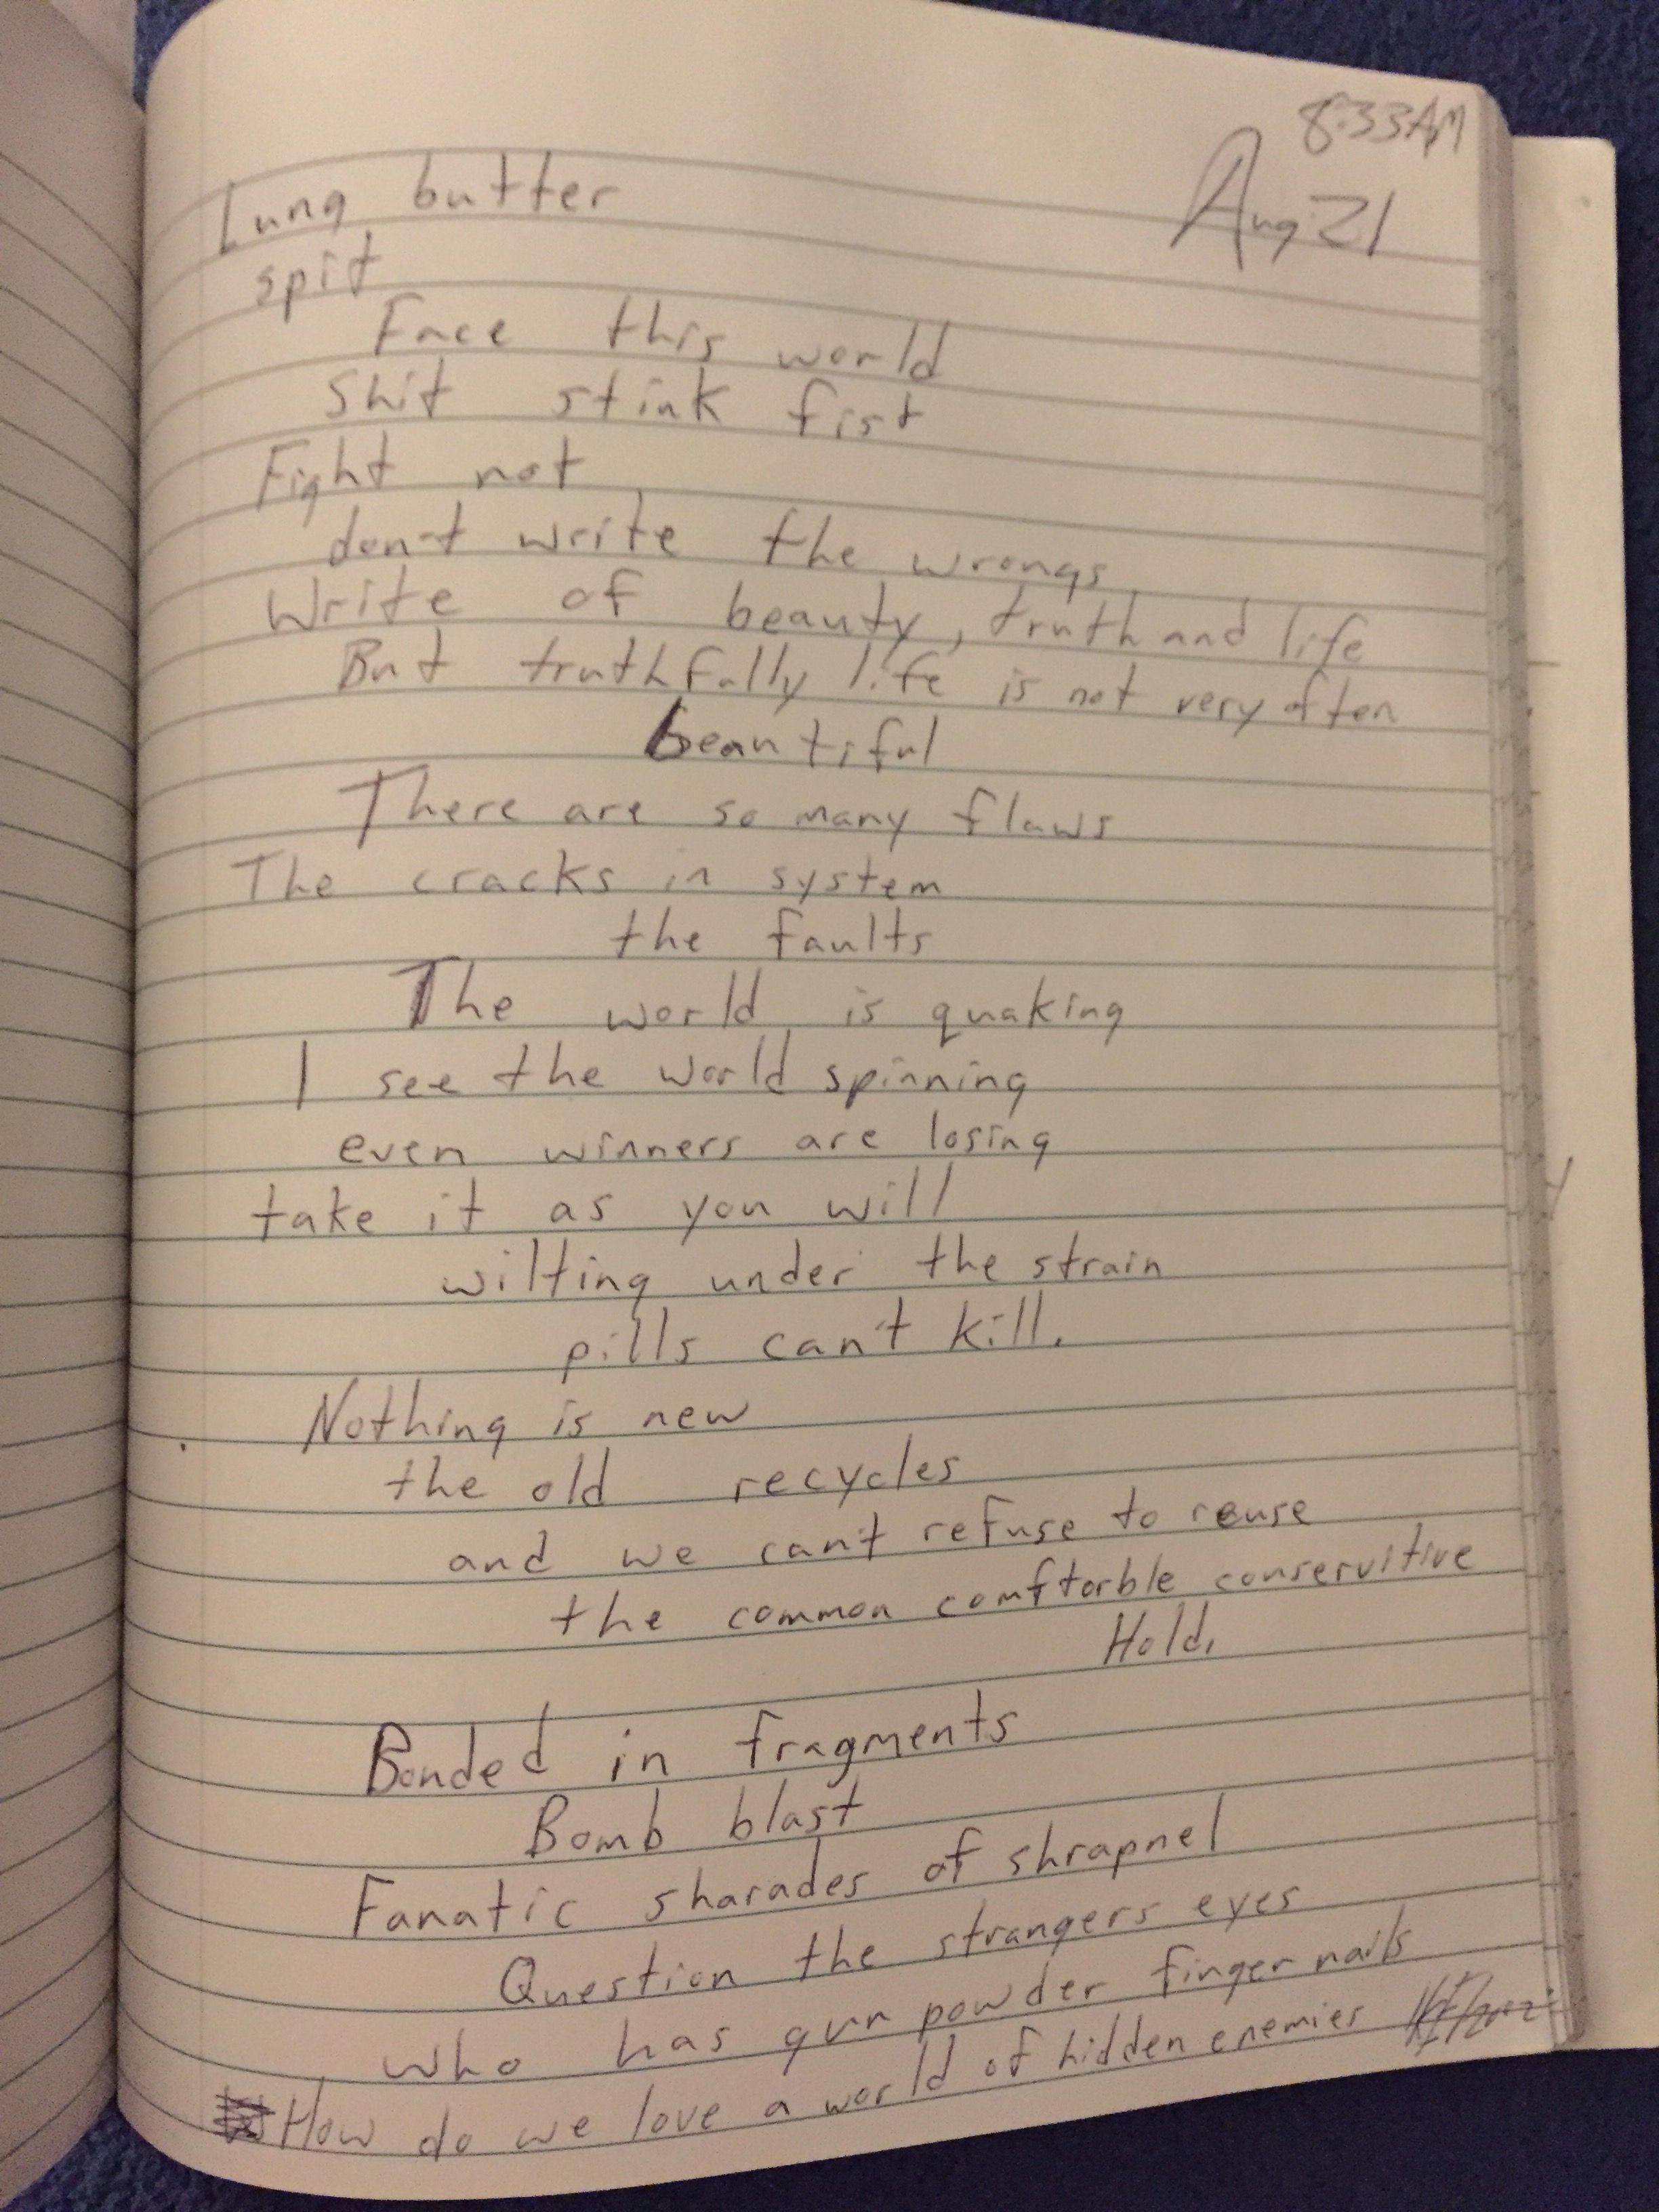 8:33AM
Aug 21
Lung butter
spit
Face this world
Shit stink fist
Fight not
don't write the wrongs
Write of beauty, truth and life
But truthfully life is not very often
beautiful
There are so many flaws
The cracks in system
the faults
The world is quaking
I see the world spinning
even winners are losing
take it as you will
wilting under the strain
pills can't kill.
Nothing is new
the old recycles
and we can't refuse to reuse
the common comftorble conservitive
Hold.
Bonded in fragments
Bomb blast
Fanatic sharades of shrapnel
Question the strangers eyes
who has gun powder finger nails
How do we love a world of hidden enemies